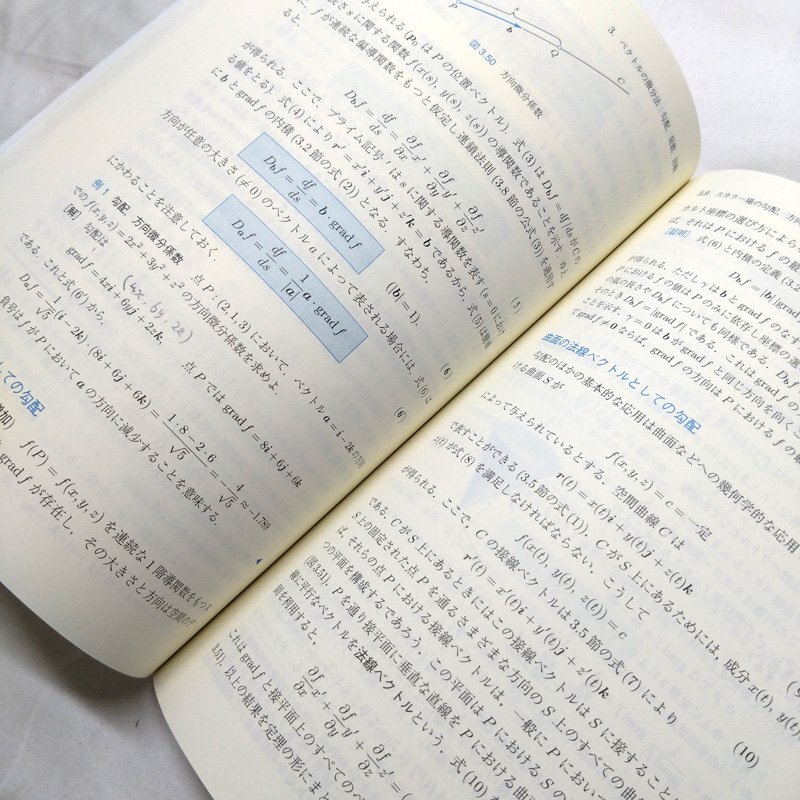 P
b
s
Q
C
図3.50 方向微分係数
えられる (P₀ は P の位置ベクトル). 式(3)は D_b f = df/ds が C の
長さ s に関する関数 f(x(s), y(s), z(s)) の導関数であることを示す. ゆえ
に, f が連続な偏導関数をもつと仮定し連鎖法則 (3.8節の公式(3)) を適用す
ると,
D_b f = df/ds = ∂f/∂x x′ + ∂f/∂y y′ + ∂f/∂z z′
(5)
が得られる. ここで, プライム記号 ′ は s に関する導関数を表す (s=0 におけ
る値をとる). 式(4)により r′ = x′i + y′j + z′k = b であるから, 式(5)は簡単
に b と grad f の内積 (3.2節の式(2)) となる. すなわち,
D_b f = df/ds = b · grad f (|b| = 1).
(6)
方向が任意の大きさ (≠0) のベクトル a によって表される場合には, 式(6)は
D_a f = df/ds = 1/|a| a · grad f
(6′)
にかわることを注意しておく.
例1 勾配, 方向微分係数 点 P : (2, 1, 3) において, ベクトル a = i − 2k の方向
での f(x, y, z) = 2x² + 3y² + z² の方向微分係数を求めよ.
[解] 勾配は (4x, 6y, 2z)
grad f = 4xi + 6yj + 2zk, 点 P では grad f = 8i + 6j + 6k
である. これと式(6′)から,
D_a f = 1/√5 (i − 2k) · (8i + 6j + 6k) = (1·8 − 2·6)/√5 = −4/√5 ≈ −1.789
負号は f が P において a の方向に減少することを意味する.
しての勾配
増加)
f(P) = f(x, y, z) を連続な1階導関数をもつス
grad f が存在し, その大きさと方向は空間のデ
3. ベクトルの微分法：勾配, 発散, 回転
3.9 スカラー場の勾配, 方向
カルト座標の選び方によら
ば, それは P における f の最
[証明] 式(6)と内積の定義 (3.2
D_b f = |b| |grad
が得られる. ただし γ は b と grad f のなす
P における f の値は P のみに依存し座標の選
の弧の長さや D_b f についても同様である.
そのとき D_b f = |grad f| である. これは grad f の
ことを示す. γ = 0 は b が grad f と同じ方向を向くこ
て grad f ≠ 0 ならば, grad f の方向は P における f の最
曲面の法線ベクトルとしての勾配
勾配のほかの基本的な応用は曲面などへの幾何学的な応用
ける曲面 S が
f(x, y, z) = c = 一定
によって与えられているとする. 空間曲線 C は
r(t) = x(t)i + y(t)j + z(t)k
で表すことができる (3.5節の式(1)). C が S 上にあるためには, 成分 x(t), y(t),
z(t) が式(8)を満足しなければならない. こうして
f(x(t), y(t), z(t)) = c
が得られる. ここで, C の接線ベクトルは 3.5節の式(7)により
r′(t) = x′(t)i + y′(t)j + z′(t)k
(10)
である. C が S 上にあるときにはこの接線ベクトルは S に接すること
S 上の固定された点 P を通るさまざまな方向の S 上のすべての曲
ば, それらの点 P における接線ベクトルは, 一般に P において
つの平面を構成するであろう. この平面は P における S の
(図3.51). P を通り接平面に垂直な直線を P における曲
線に平行なベクトルを法線ベクトルという. 式(10)
則を利用すると,
∂f/∂x x′ + ∂f/∂y y′ + ∂f/∂z z′ = (
これは grad f と接平面上のすべてのベ
3.51). 以上の結果を定理の形にまと